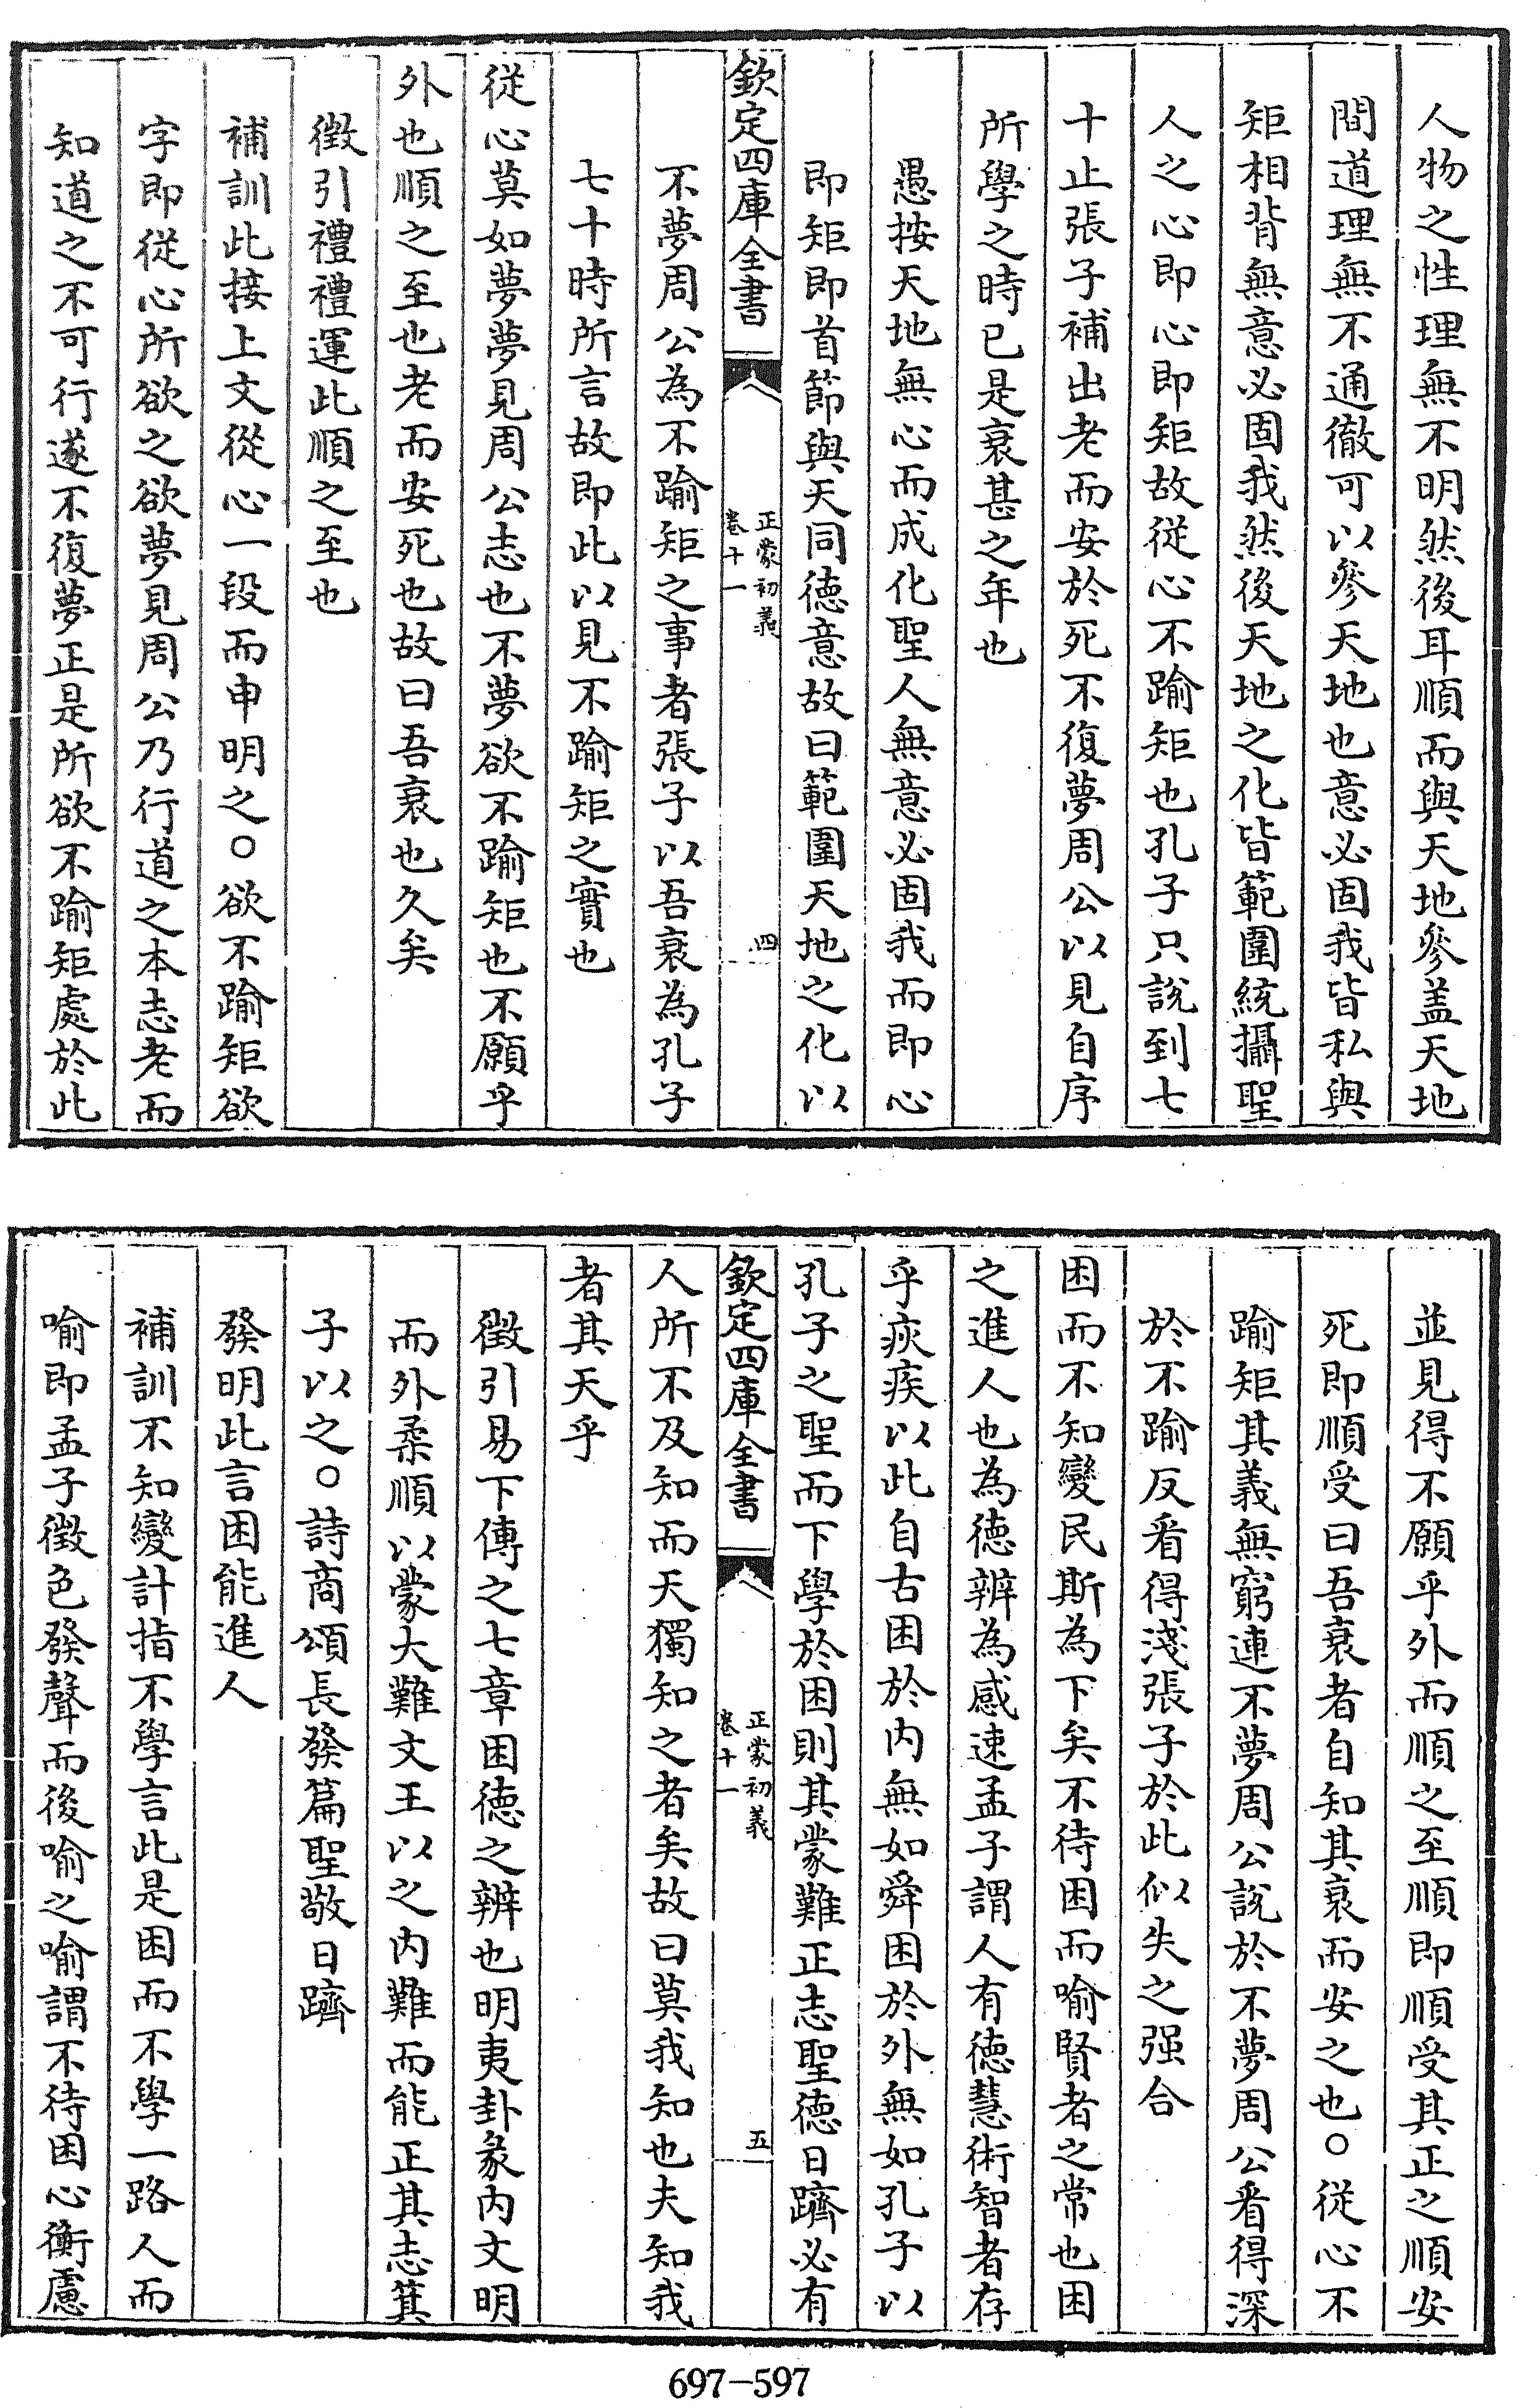 人物之性理無不明然後耳順而與天地參盖天地
間道理無不通徹可以參天地也意必固我皆私與
矩相背無意必固我然後天地之化皆範圍統攝聖
人之心即心即矩故從心不踰矩也孔子只說到七
十止張子補出老而安於死不復夢周公以見自序
所學之時已是衰甚之年也
愚按天地無心而成化聖人無意必固我而即心
即矩即首節與天同德意故曰範圍天地之化以
欽定四庫全書
正蒙初義
卷十一
四
不夢周公為不踰矩之事者張子以吾衰為孔子
七十時所言故即此以見不踰矩之實也
從心莫如夢夢見周公志也不夢欲不踰矩也不願乎
外也順之至也老而安死也故曰吾衰也久矣
徵引禮禮運此順之至也
補訓此接上文從心一段而申明之○欲不踰矩欲
字即從心所欲之欲夢見周公乃行道之本志老而
知道之不可行遂不復夢正是所欲不踰矩處於此
並見得不願乎外而順之至順即順受其正之順安
死即順受曰吾衰者自知其衰而安之也○從心不
踰矩其義無窮連不夢周公說於不夢周公看得深
於不踰反看得淺張子於此似失之强合
困而不知變民斯為下矣不待困而喻賢者之常也困
之進人也為德辨為感速孟子謂人有德慧術智者存
乎疢疾以此自古困於内無如舜困於外無如孔子以
孔子之聖而下學於困則其蒙難正志聖德日躋必有
欽定四庫全書
正蒙初義
卷十一
五
人所不及知而天獨知之者矣故曰莫我知也夫知我
者其天乎
徵引易下傳之七章困德之辨也明夷卦彖内文明
而外柔順以蒙大難文王以之内難而能正其志箕
子以之○詩商頌長發篇聖敬日躋
發明此言困能進人
補訓不知變計指不學言此是困而不學一路人而
喻即孟子徵色發聲而後喻之喻謂不待困心衡慮
697-597